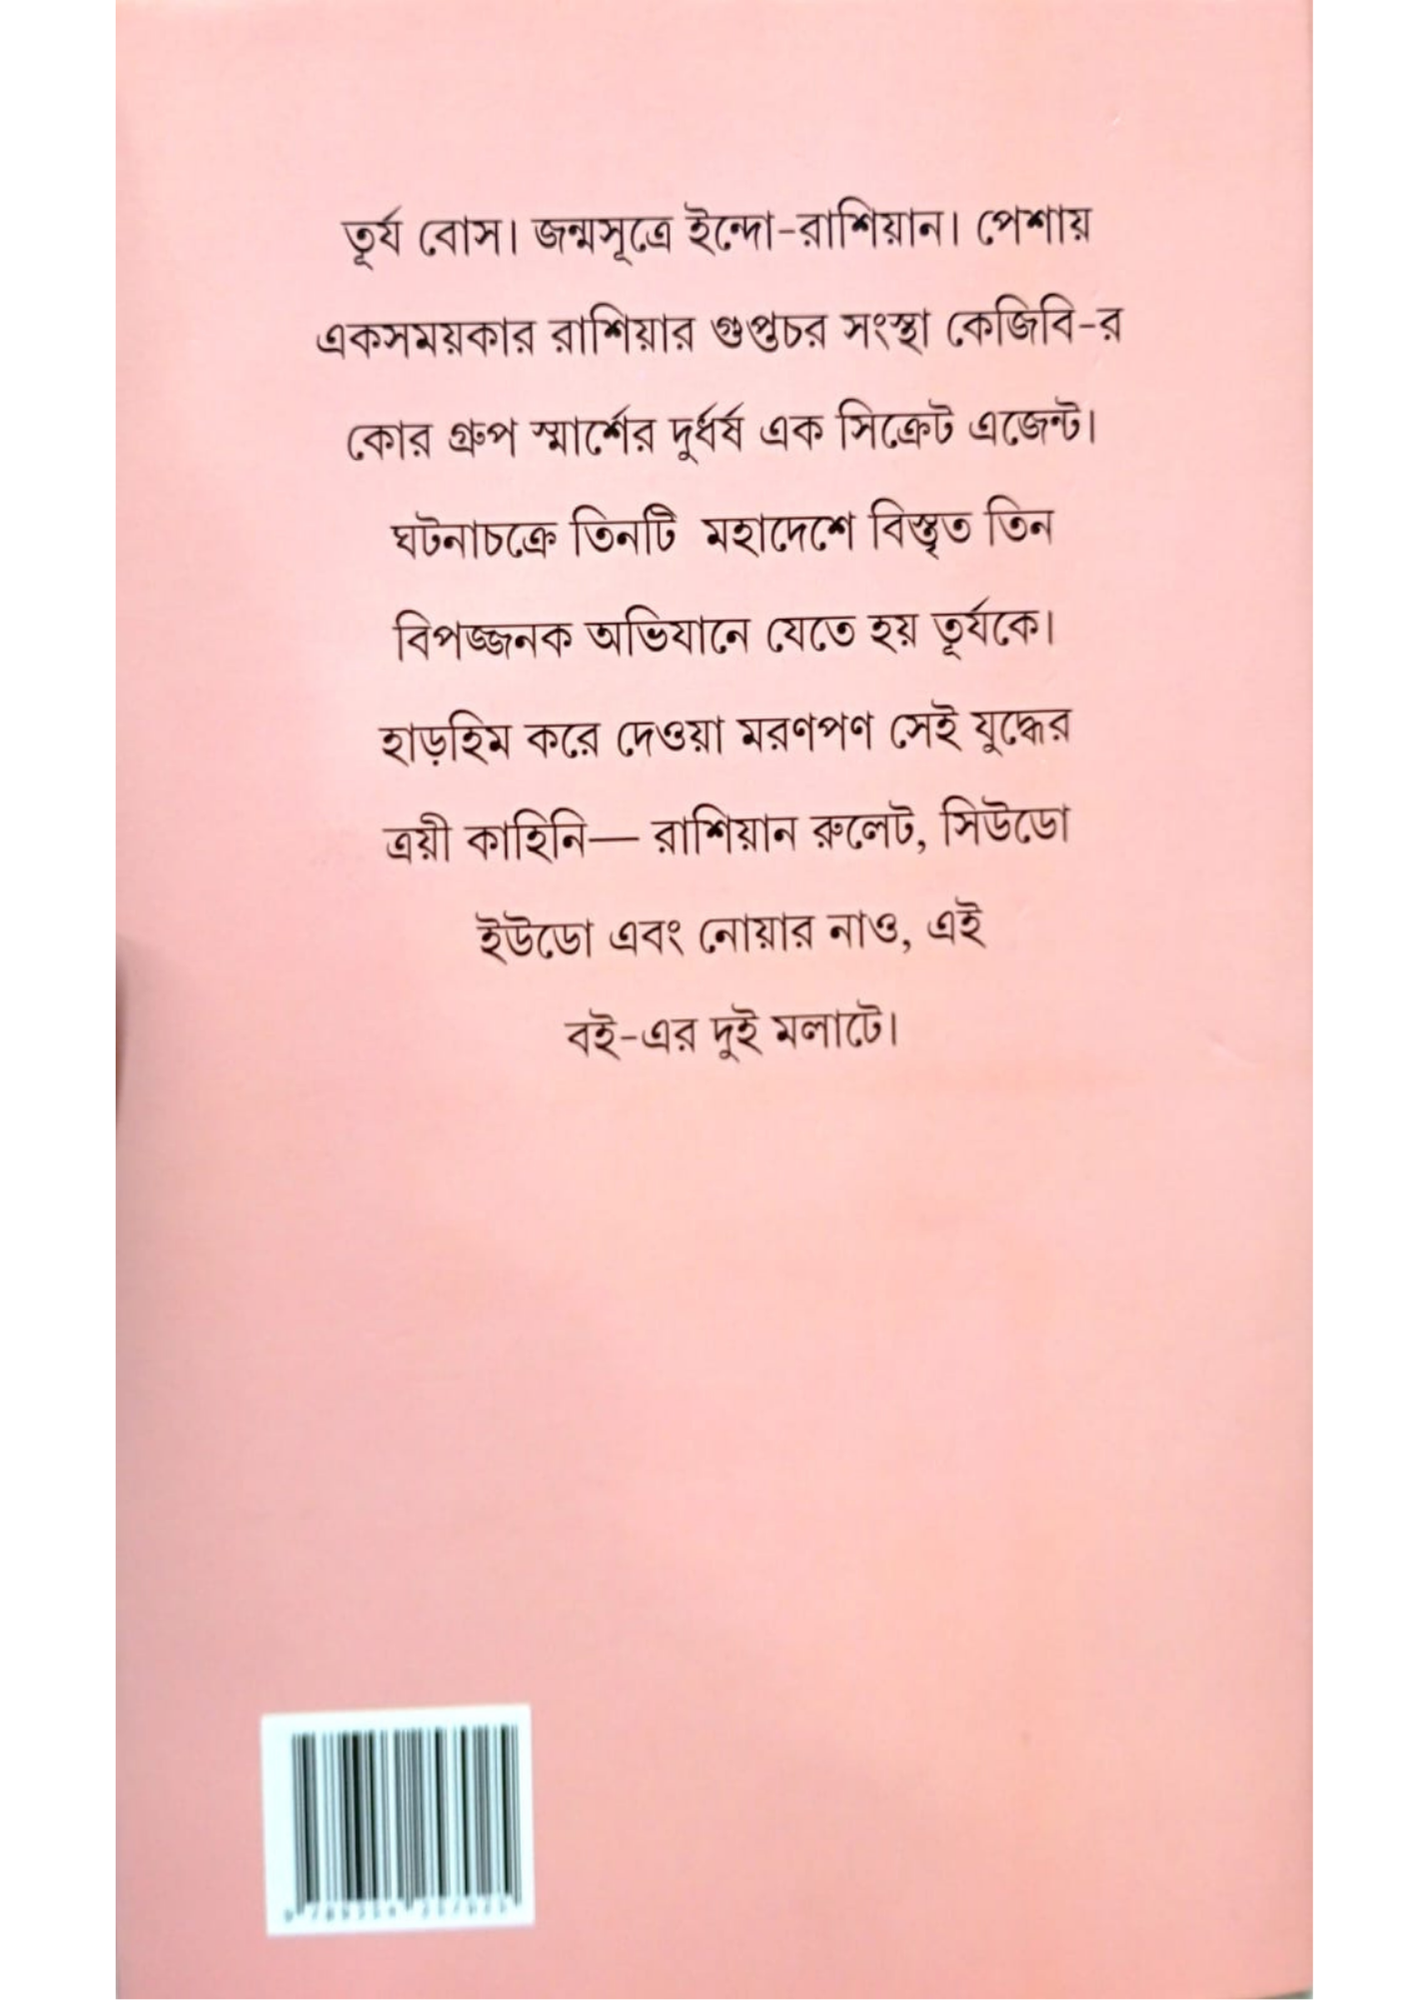 তূর্য বোস। জন্মসূত্রে ইন্দো-রাশিয়ান। পেশায়
একসময়কার রাশিয়ার গুপ্তচর সংস্থা কেজিবি-র
কোর গ্রুপ স্মার্শের দুর্ধর্ষ এক সিক্রেট এজেন্ট।
ঘটনাচক্রে তিনটি মহাদেশে বিস্তৃত তিন
বিপজ্জনক অভিযানে যেতে হয় তূর্যকে।
হাড়হিম করে দেওয়া মরণপণ সেই যুদ্ধের
ত্রয়ী কাহিনি— রাশিয়ান রুলেট, সিউডো
ইউডো এবং নোয়ার নাও, এই
বই-এর দুই মলাটে।